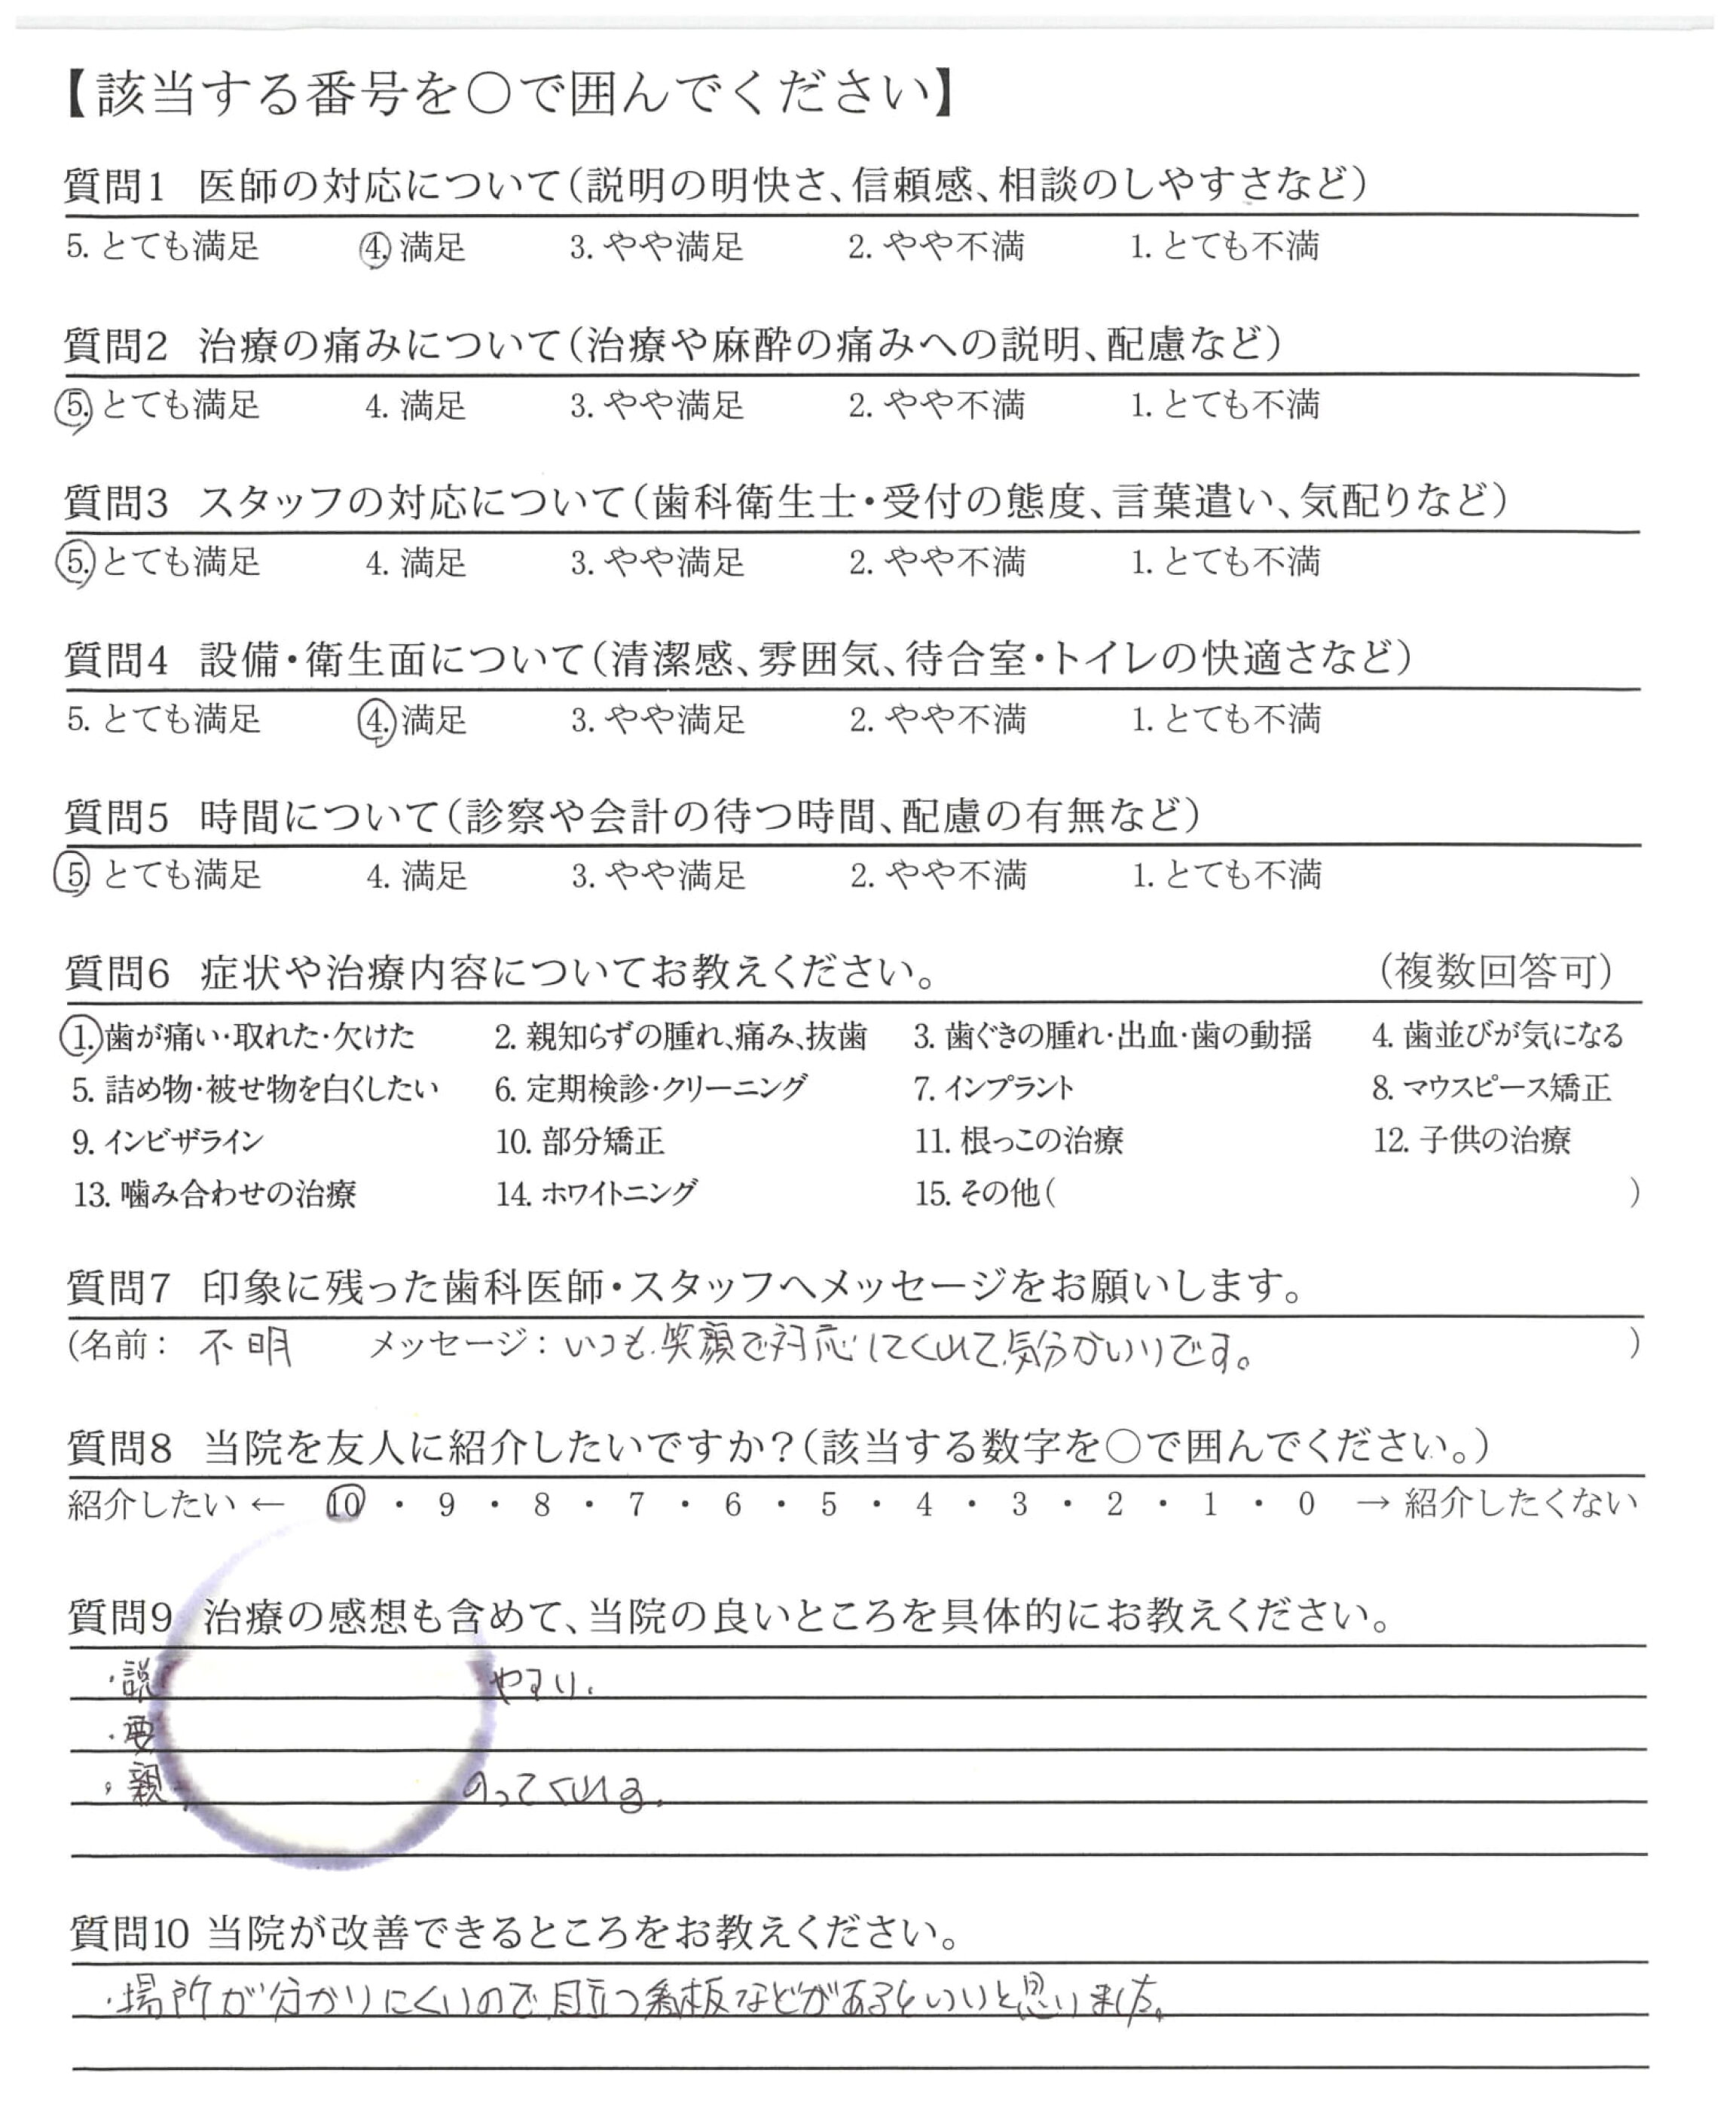 【該当する番号を○で囲んでください】
質問1 医師の対応について(説明の明快さ、信頼感、相談のしやすさなど)
5. とても満足 4. 満足 3. やや満足 2. やや不満 1. とても不満
質問2 治療の痛みについて(治療や麻酔の痛みへの説明、配慮など)
5. とても満足 4. 満足 3. やや満足 2. やや不満 1. とても不満
質問3 スタッフの対応について(歯科衛生士・受付の態度、言葉遣い、気配りなど)
5. とても満足 4. 満足 3. やや満足 2. やや不満 1. とても不満
質問4 設備・衛生面について(清潔感、雰囲気、待合室・トイレの快適さなど)
5. とても満足 4. 満足 3. やや満足 2. やや不満 1. とても不満
質問5 時間について(診察や会計の待つ時間、配慮の有無など)
5. とても満足 4. 満足 3. やや満足 2. やや不満 1. とても不満
質問6 症状や治療内容についてお教えください。 (複数回答可)
1. 歯が痛い・取れた・欠けた 2. 親知らずの腫れ、痛み、抜歯 3. 歯ぐきの腫れ・出血・歯の動揺 4. 歯並びが気になる
5. 詰め物・被せ物を白くしたい 6. 定期検診・クリーニング 7. インプラント 8. マウスピース矯正
9. インビザライン 10. 部分矯正 11. 根っこの治療 12. 子供の治療
13. 噛み合わせの治療 14. ホワイトニング 15. その他( )
質問7 印象に残った歯科医師・スタッフへメッセージをお願いします。
(名前: 不明 メッセージ: いつも笑顔で対応してくれて気分がいいです。 )
質問8 当院を友人に紹介したいですか?(該当する数字を○で囲んでください。)
紹介したい ← 10 ・ 9 ・ 8 ・ 7 ・ 6 ・ 5 ・ 4 ・ 3 ・ 2 ・ 1 ・ 0 → 紹介したくない
質問9 治療の感想も含めて、当院の良いところを具体的にお教えください。
・説 やすい。
・要
・親 のってくれる。
質問10 当院が改善できるところをお教えください。
・場所が分かりにくいので目立つ看板などがあるといいと思いました。